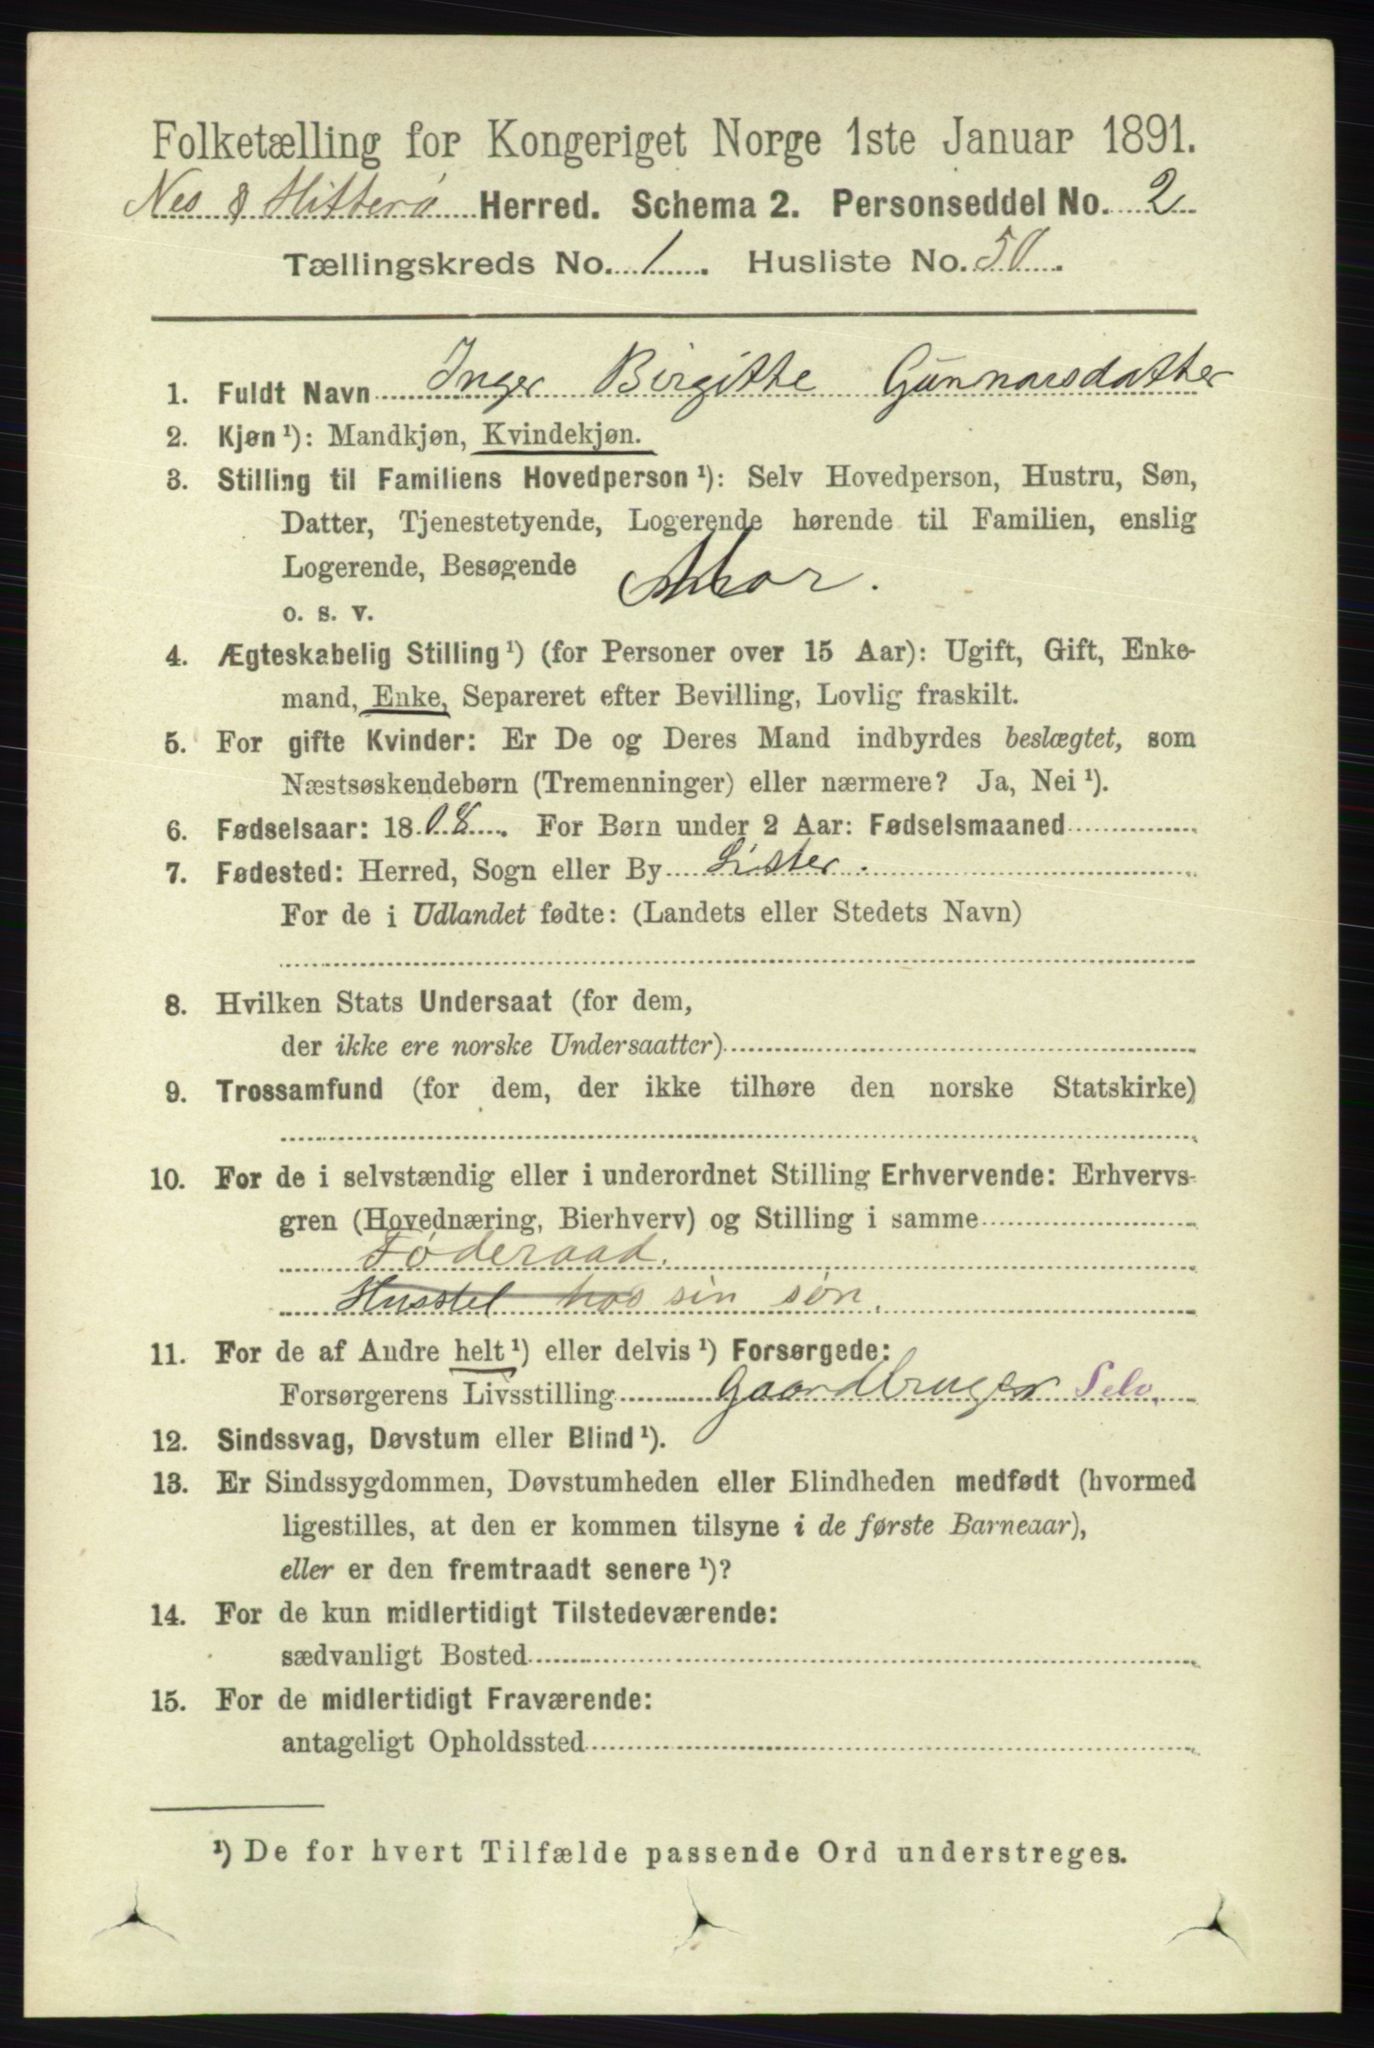 Folketælling for Kongeriget Norge 1ste Januar 1891.
Nes & Hitterø Herred. Schema 2. Personseddel No. 2
Tællingskreds No. 1. Husliste No. 50.
1. Fuldt Navn Inger Birgitte Gunnarsdatter
2. Kjøn ¹): Mandkjøn, Kvindekjøn.
3. Stilling til Familiens Hovedperson ¹): Selv Hovedperson, Hustru, Søn,
Datter, Tjenestetyende, Logerende hørende til Familien, enslig
Logerende, Besøgende Mor.
o. s. v.
4. Ægteskabelig Stilling ¹) (for Personer over 15 Aar): Ugift, Gift, Enke-
mand, Enke, Separeret efter Bevilling, Lovlig fraskilt.
5. For gifte Kvinder: Er De og Deres Mand indbyrdes beslægtet, som
Næstsøskendebørn (Tremenninger) eller nærmere? Ja, Nei ¹).
6. Fødselsaar: 1808. For Børn under 2 Aar: Fødselsmaaned
7. Fødested: Herred, Sogn eller By Lister.
For de i Udlandet fødte: (Landets eller Stedets Navn)
8. Hvilken Stats Undersaat (for dem,
der ikke ere norske Undersaatter)
9. Trossamfund (for dem, der ikke tilhøre den norske Statskirke)
10. For de i selvstændig eller i underordnet Stilling Erhvervende: Erhvervs-
gren (Hovednæring, Bierhverv) og Stilling i samme
Føderaad.
Husstel hos sin søn.
11. For de af Andre helt ¹) eller delvis ¹) Forsørgede:
Forsørgerens Livsstilling Gaardbruger Selv.
12. Sindssvag, Døvstum eller Blind ¹).
13. Er Sindssygdommen, Døvstumheden eller Blindheden medfødt (hvormed
ligestilles, at den er kommen tilsyne i de første Barneaar),
eller er den fremtraadt senere ¹)?
14. For de kun midlertidigt Tilstedeværende:
sædvanligt Bosted
15. For de midlertidigt Fraværende:
antageligt Opholdssted
¹) De for hvert Tilfælde passende Ord understreges.